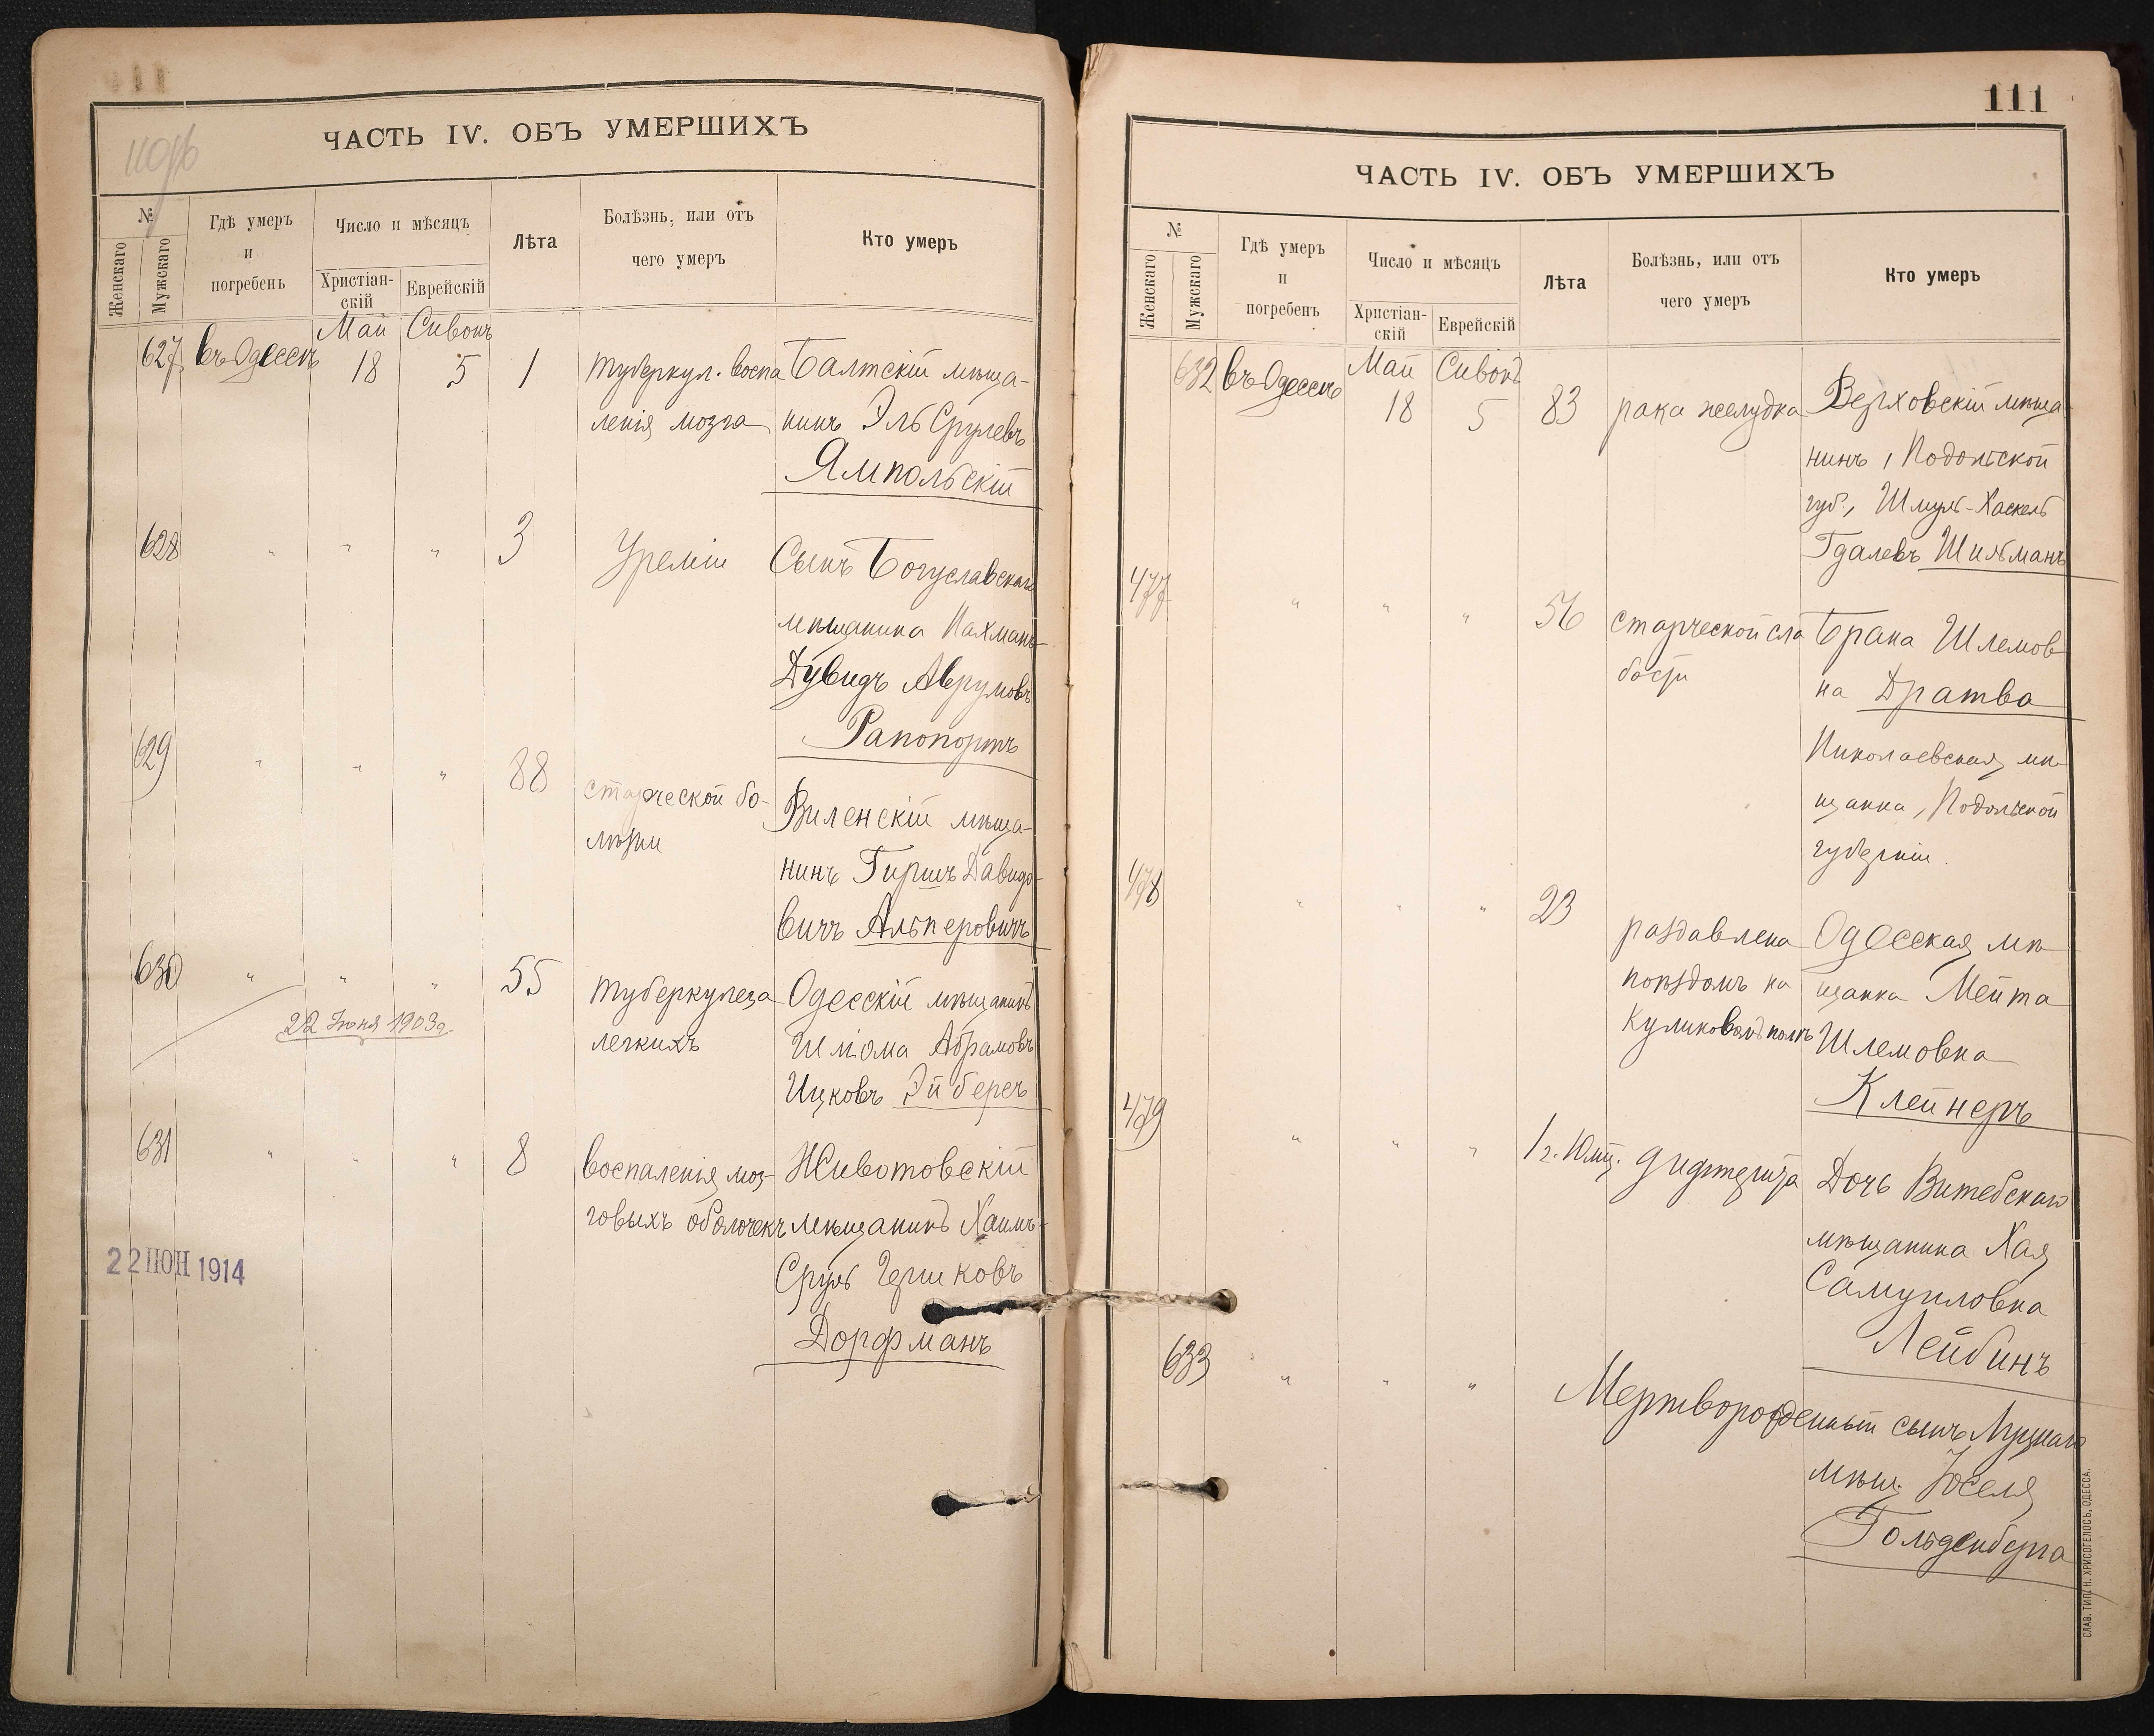 ЧАСТЬ IV. ОБЪ УМЕРШИХЪ
№
Женскаго
Мужскаго
Гдѣ умеръ
и
погребенъ
Число и мѣсяцъ
Христіан-
скій
Еврейскій
Лѣта
Болѣзнь, или отъ
чего умеръ
Кто умеръ
Май Сивонъ
627 въ Одессѣ 18 5 1 туберкул. воспа Балтскій мѣща-
ленія мозга нинъ Эль Срулевъ
Ямпольскій
628 " " " 3 Уреміи Сынъ Богуславскаго
мѣщанина Нахманъ-
Дувидъ Аврумовъ
Рапопортъ
629 " " " 88 старческой бо- Виленскій мѣща-
лѣзни нинъ Гиршъ Давидо-
вичъ Альперовичъ
630 " " " 55 туберкулеза Одесскій мѣщанинъ
22 Іюня 1903 г.
легкихъ Шліома Абрамовъ
Ицковъ Эйберсъ
631 " " " 8 воспаленія моз- Животовскій
говыхъ оболочекъ мѣщанинъ Хаимъ-
Сруль Гершковъ
Дорфманъ
22 ІЮН 1914
111
ЧАСТЬ IV. ОБЪ УМЕРШИХЪ
№
Женскаго
Мужскаго
Гдѣ умеръ
и
погребенъ
Число и мѣсяцъ
Христіан-
скій
Еврейскій
Лѣта
Болѣзнь, или отъ
чего умеръ
Кто умеръ
Май Сивонъ
632 въ Одессѣ 18 5 83 рака желудка Верховскій мѣща-
нинъ, Подольской
губ., Шмуль-Хаскель
Гдалевъ Шильманъ
477 " " " 56 старческой сла Брана Шлемов
бости на Дратва
Николаевская мѣ-
щанка, Подольской
губерніи.
478 " " " 23 раздавлена Одесская мѣ-
поѣздомъ на щанка Мейта
Куликовомъ полѣ Шлемовна
Клейнеръ
479 " " " 1 г. 10 мц. дифтерита Дочь Витебскаго
мѣщанина Хая
Самуиловна
Лейбинъ
633 " " " Мертворожденный сынъ Луцкаго
мѣщ. Іоселя
Гольденберга
СЛАВ. ТИП. Н. ХРИСОГЕЛОСЪ, ОДЕССА.